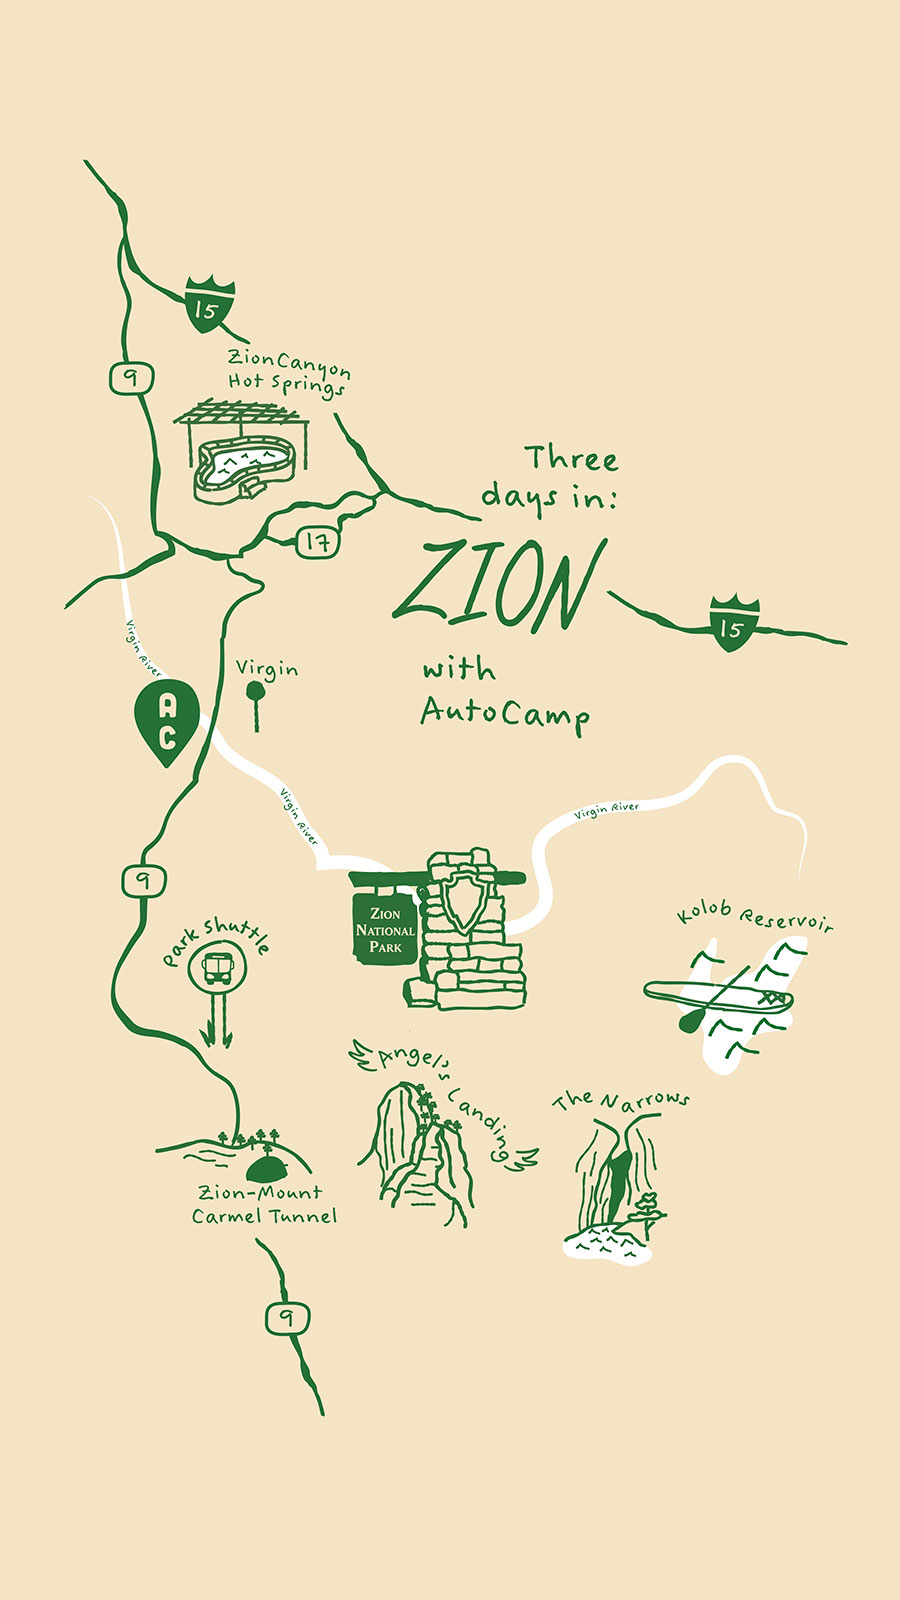 15
Zion Canyon
Hot Springs
9
Three
days in:
17
ZION
15
with
AutoCamp
Virgin River
Virgin
A
C
Virgin River
Virgin River
9
Zion
National
Park
Kolob Reservoir
Park Shuttle
Angel's Landing
The Narrows
Zion-Mount
Carmel Tunnel
9